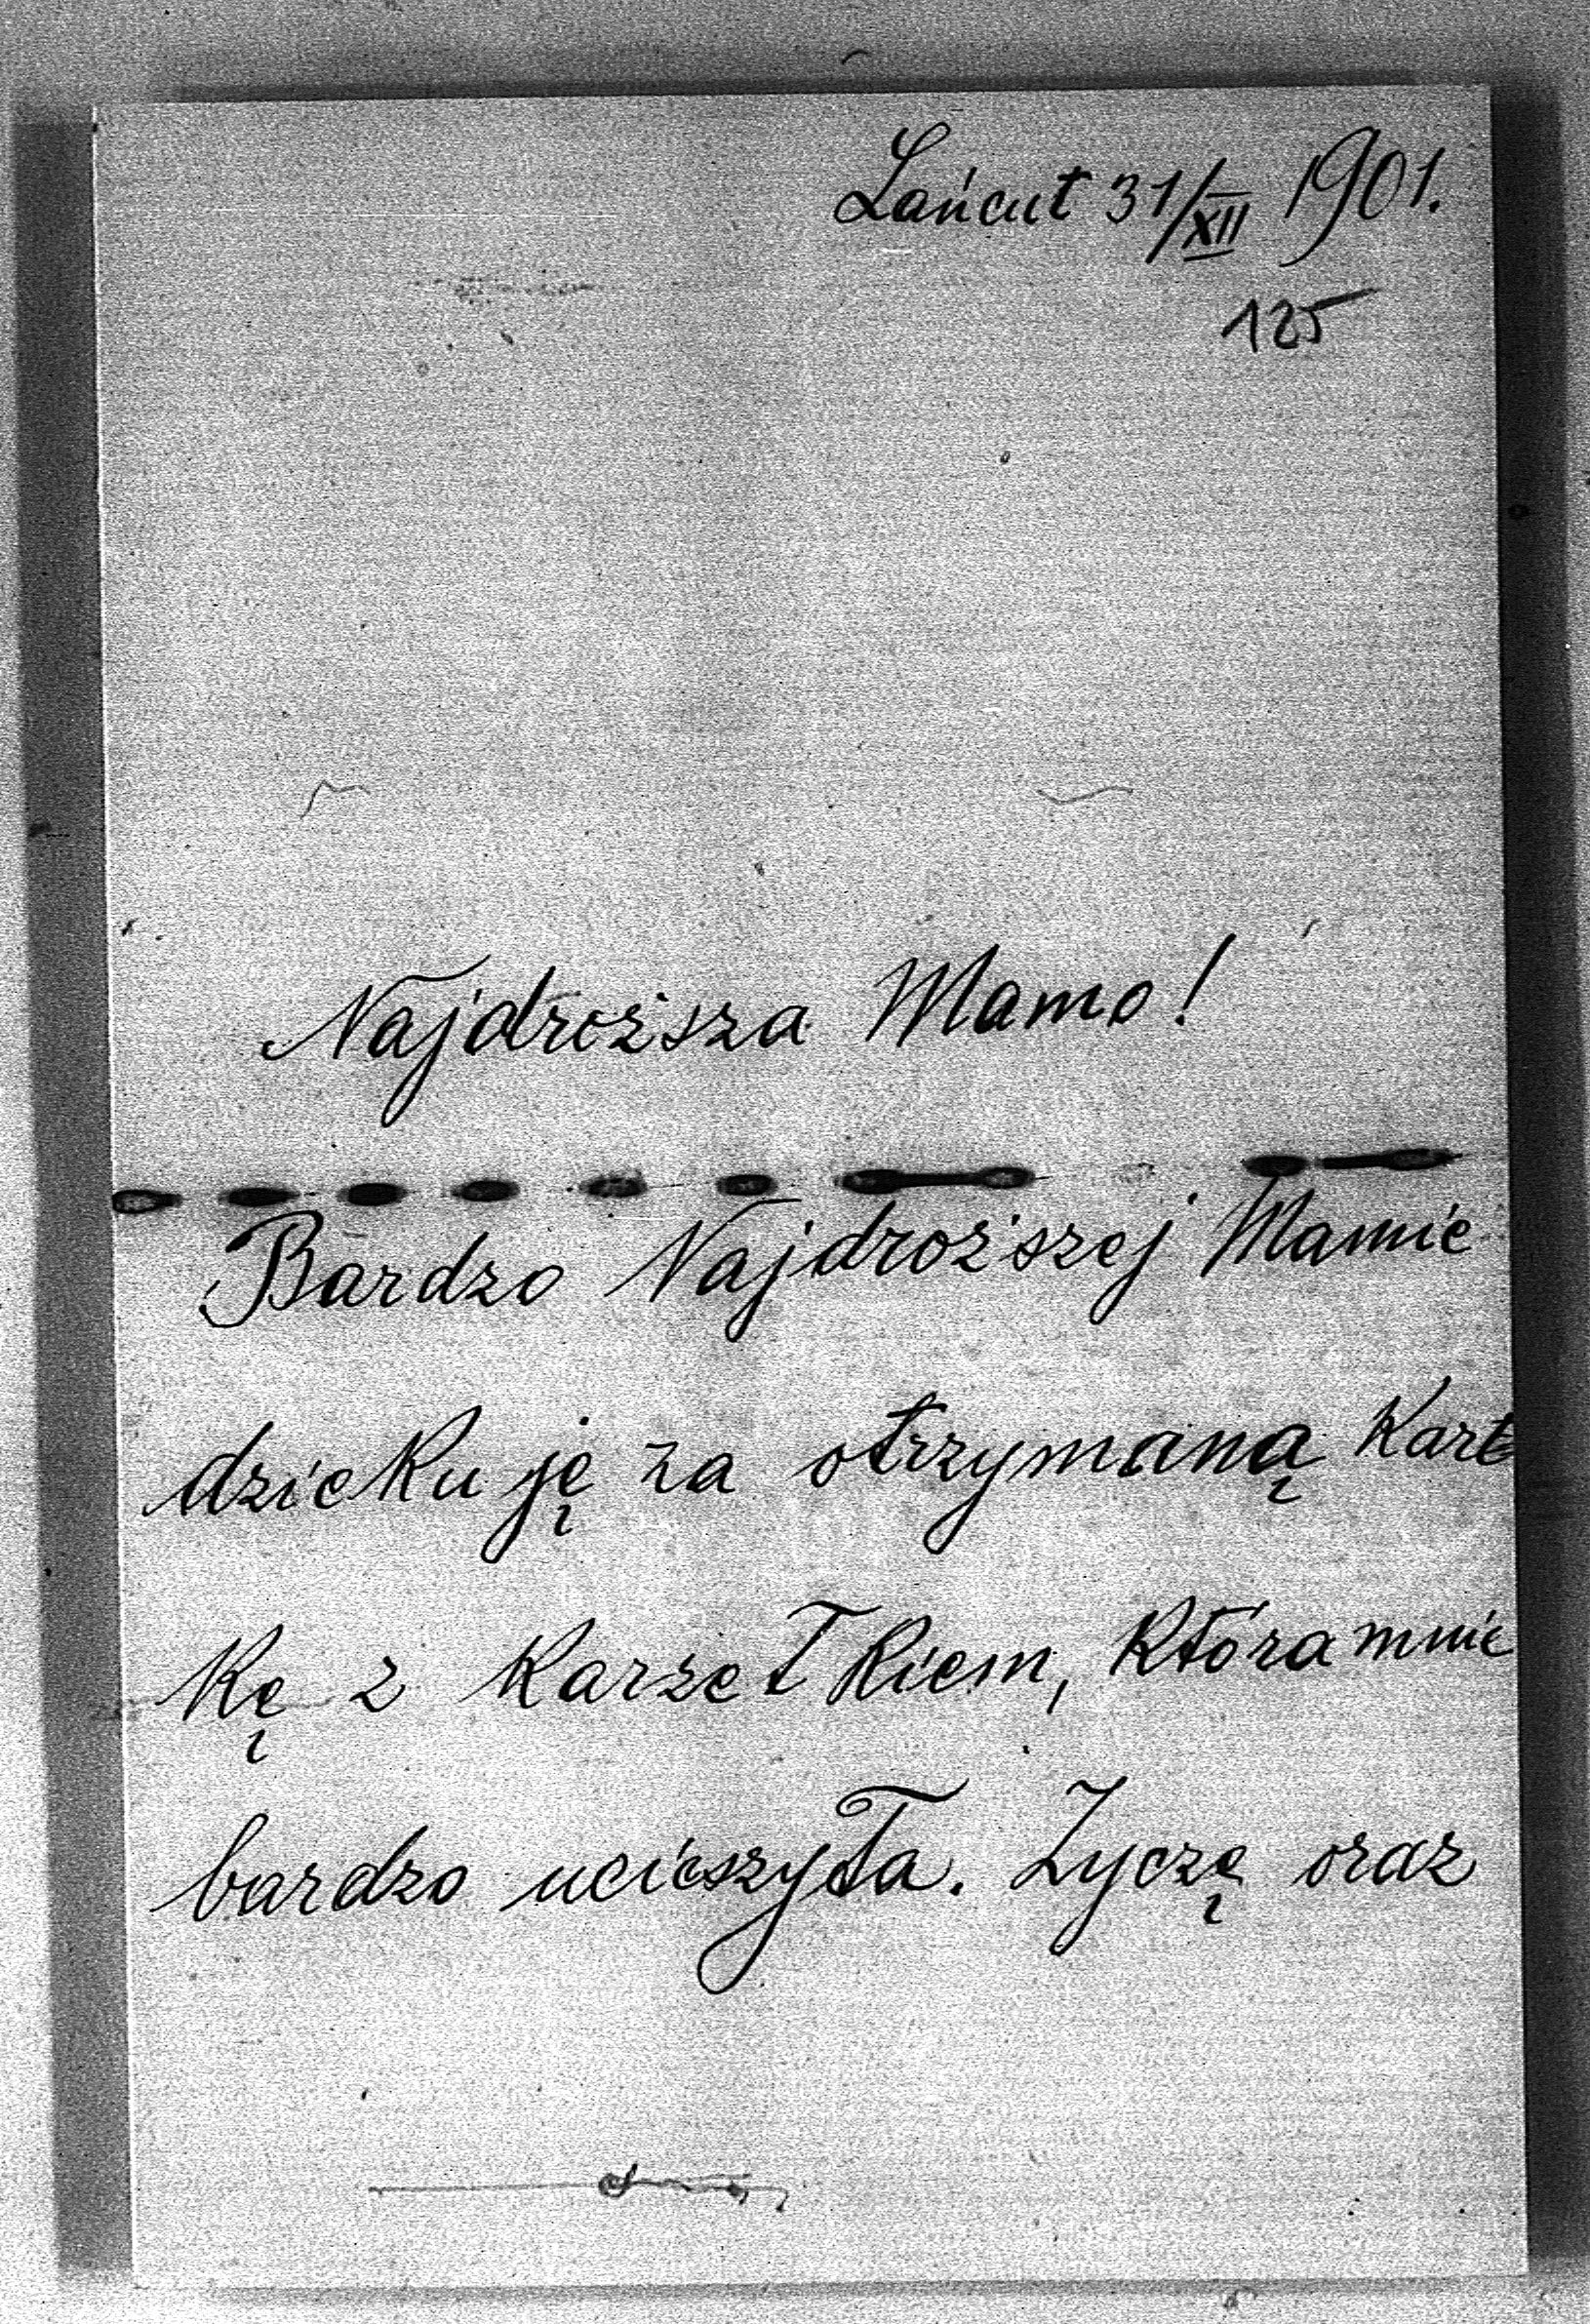 Łańcut 31/XII 1901.
125
Najdroższa Mamo!
Bardzo Najdroższej Mamie
dziekuję za otrzymaną Kart
Kę z Karzełkiem, która mnie
bardzo ucieszyła. Życzę oraz